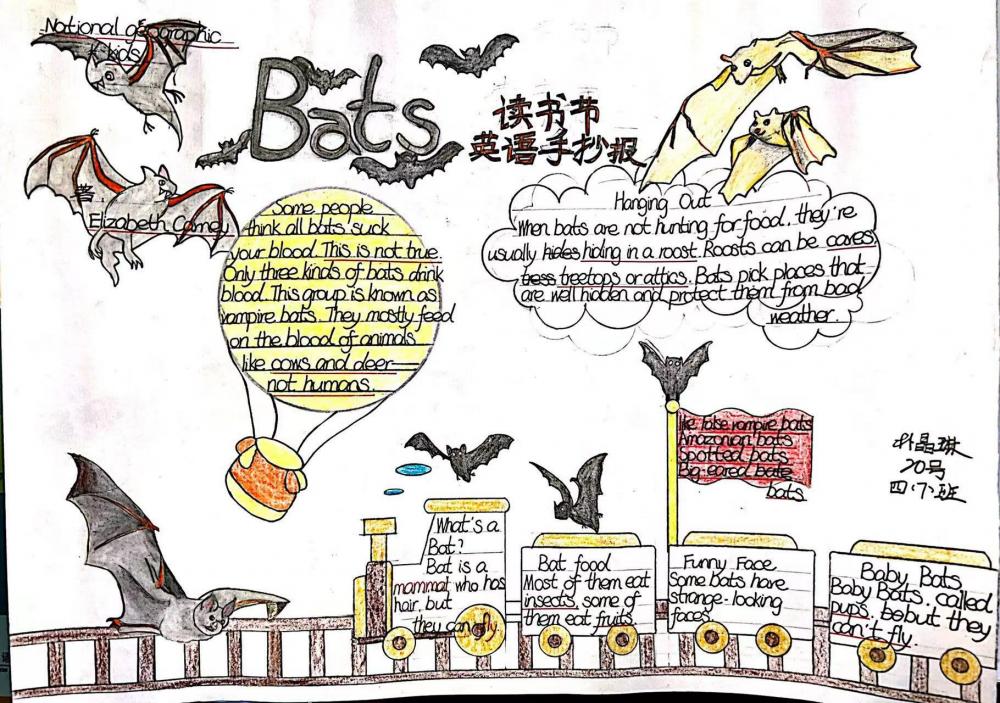 National geographic
kids
Bats
读书节
英语手抄报
著:
Elizabeth Carney
Some people
think all bats suck
your blood. This is not true.
Only three kinds of bats drink
blood. This group is known as
vampire bats. They mostly feed
on the blood of animals
like cows and deer—
not humans.
Hanging Out
When bats are not hunting for food, they're
usually hides hiding in a roost. Roosts can be caves,
tress treetops or attics. Bats pick places that
are well hidden and protect them from bad
weather.
like false vampire bats
Amazonian bats
Spotted bats
Big-eared bate
bats.
晶琳
20号
What's a
Bat?
Bat is a
mammat who has
hair, but
they can fly
Bat food
Most of them eat
insects, some of
them eat fruits.
Funny Face
Some bats have
strange-looking
faces
Baby Bats
Baby Bats, called
pups, be but they
can't fly.